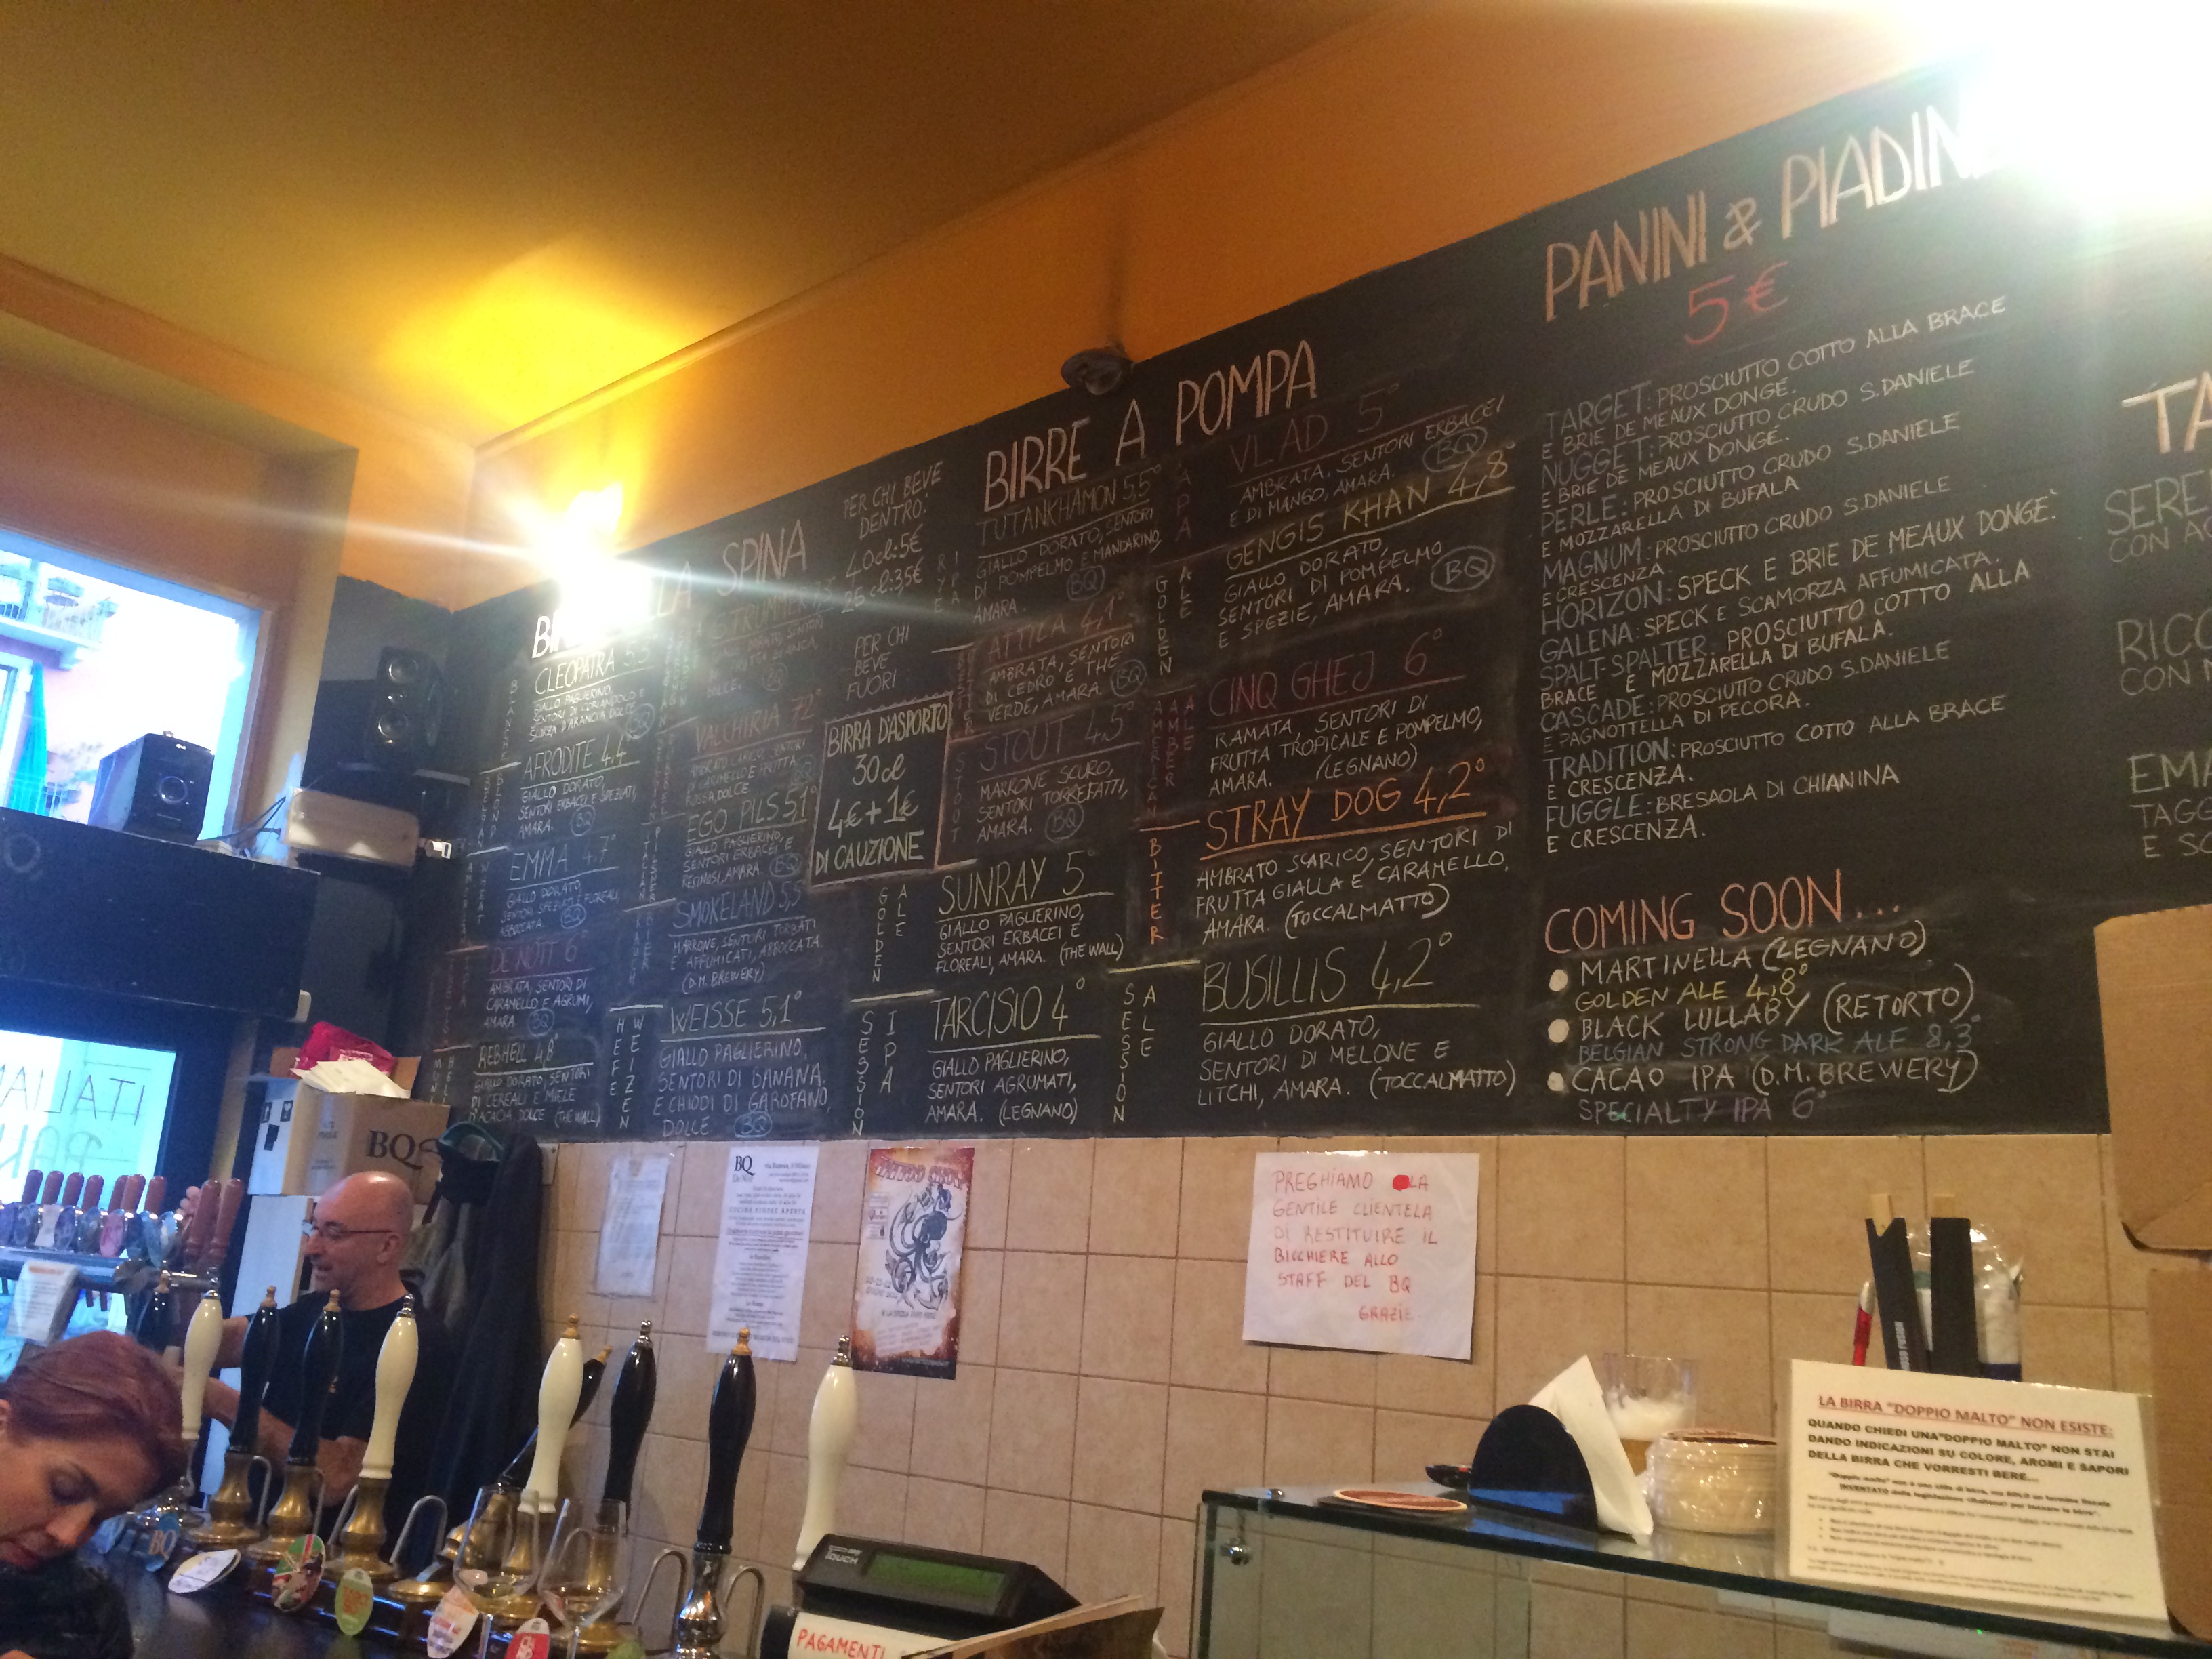 SPINA
CLEOPATRA 5,5
GIALLO PAGLIERINO,
SENTORI DI CORIANDOLO E
SCORZA D'ARANCIA DOLCE
BQ
AFRODITE 4,4°
GIALLO DORATO,
SENTORI ERBACEI E SPEZIATI,
AMARA. BQ
EMMA 4,7°
GIALLO DORATO,
SENTORI SPEZIATI E FLOREALI,
ABBOCCATA. BQ
DE NÖTT 6°
AMBRATA, SENTORI DI
CARAMELLO E AGRUMI,
AMARA BQ
REBHELL 4,8°
GIALLO DORATO, SENTORI
DI CEREALI E MIELE
D'ACACIA DOLCE (THE WALL)
STRUMMER
DOLCE. BQ
VALCHIRIA 7,2°
DI CARAMELLO E FRUTTA
ROSSA, DOLCE BQ
ITALIAN PILSNER
EGO PILS 5,1°
GIALLO PAGLIERINO,
SENTORI ERBACEI E
RESINOSI, AMARA. BQ
RAUCH BIER
SMOKELAND 5,5°
MARRONE, SENTORI TORBATI
E AFFUMICATI, ABBOCCATA.
(D.M. BREWERY)
HEFE WEIZEN
WEISSE 5,1°
GIALLO PAGLIERINO,
SENTORI DI BANANA
E CHIODI DI GAROFANO,
DOLCE BQ
PER CHI BEVE
DENTRO:
40cl:5€
25cl:3,5€
PER CHI
BEVE
FUORI
BIRRA D'ASPORTO
30cl
4€+1€
DI CAUZIONE
BIRRE A POMPA
RYE IPA
TUTANKHAMON 5,5°
GIALLO DORATO, SENTORI
DI POMPELMO E MANDARINO,
AMARA. BQ
ATTILA 4,1°
AMBRATA, SENTORI
DI CEDRO E THE
VERDE, AMARA. BQ
STOUT
STOUT 4,5°
MARRONE SCURO,
SENTORI TORREFATTI,
AMARA. BQ
GOLDEN ALE
SUNRAY 5°
GIALLO PAGLIERINO,
SENTORI ERBACEI E
FLOREALI, AMARA. (THE WALL)
SESSION IPA
TARCISIO 4°
GIALLO PAGLIERINO,
SENTORI AGRUMATI,
AMARA. (LEGNANO)
APA
VLAD 5°
AMBRATA, SENTORI ERBACEI
E DI MANGO, AMARA. BQ
GOLDEN ALE
GENGIS KHAN 4,8°
GIALLO DORATO,
SENTORI DI POMPELMO
E SPEZIE, AMARA. BQ
AMERICAN AMBER ALE
CINQ GHEJ 6°
RAMATA, SENTORI DI
FRUTTA TROPICALE E POMPELMO,
AMARA. (LEGNANO)
BITTER
STRAY DOG 4,2°
AMBRATO SCARICO, SENTORI DI
FRUTTA GIALLA E CARAMELLO,
AMARA. (TOCCALMATTO)
SESSION ALE
BUSILLIS 4,2°
GIALLO DORATO,
SENTORI DI MELONE E
LITCHI, AMARA. (TOCCALMATTO)
PANINI & PIADIN
5€
TARGET: PROSCIUTTO COTTO ALLA BRACE
E BRIE DE MEAUX DONGE.
NUGGET: PROSCIUTTO CRUDO S.DANIELE
E BRIE DE MEAUX DONGÉ.
PERLE: PROSCIUTTO CRUDO S.DANIELE
E MOZZARELLA DI BUFALA
MAGNUM: PROSCIUTTO CRUDO S.DANIELE
E CRESCENZA.
HORIZON: SPECK E BRIE DE MEAUX DONGE'.
GALENA: SPECK E SCAMORZA AFFUMICATA.
SPALT-SPALTER: PROSCIUTTO COTTO ALLA
BRACE E MOZZARELLA DI BUFALA.
CASCADE: PROSCIUTTO CRUDO S.DANIELE
E PAGNOTTELLA DI PECORA.
TRADITION: PROSCIUTTO COTTO ALLA BRACE
E CRESCENZA.
FUGGLE: BRESAOLA DI CHIANINA
E CRESCENZA.
COMING SOON...
MARTINELLA (LEGNANO)
GOLDEN ALE 4,8°
BLACK LULLABY (RETORTO)
BELGIAN STRONG DARK ALE 8,3°
CACAO IPA (D.M. BREWERY)
SPECIALTY IPA 6°
TA
SERE
CON
RICO
CON
EMA
TAGG
E SC
BQ
BQ
De Nott
CUCINA SEMPRE APERTA
TATTOO SHOW
PREGHIAMO LA
GENTILE CLIENTELA
DI RESTITUIRE IL
BICCHIERE ALLO
STAFF DEL BQ
GRAZIE
LA BIRRA "DOPPIO MALTO" NON ESISTE:
QUANDO CHIEDI UNA "DOPPIO MALTO" NON STAI
DANDO INDICAZIONI SU COLORE, AROMI E SAPORI
DELLA BIRRA CHE VORRESTI BERE...
"Doppio malto" non è uno stile di birra, ma SOLO un termine fiscale
INVENTATO dalla legislazione italiana per tassare la birra.
BQ
TOUCH
PAGAMENTI